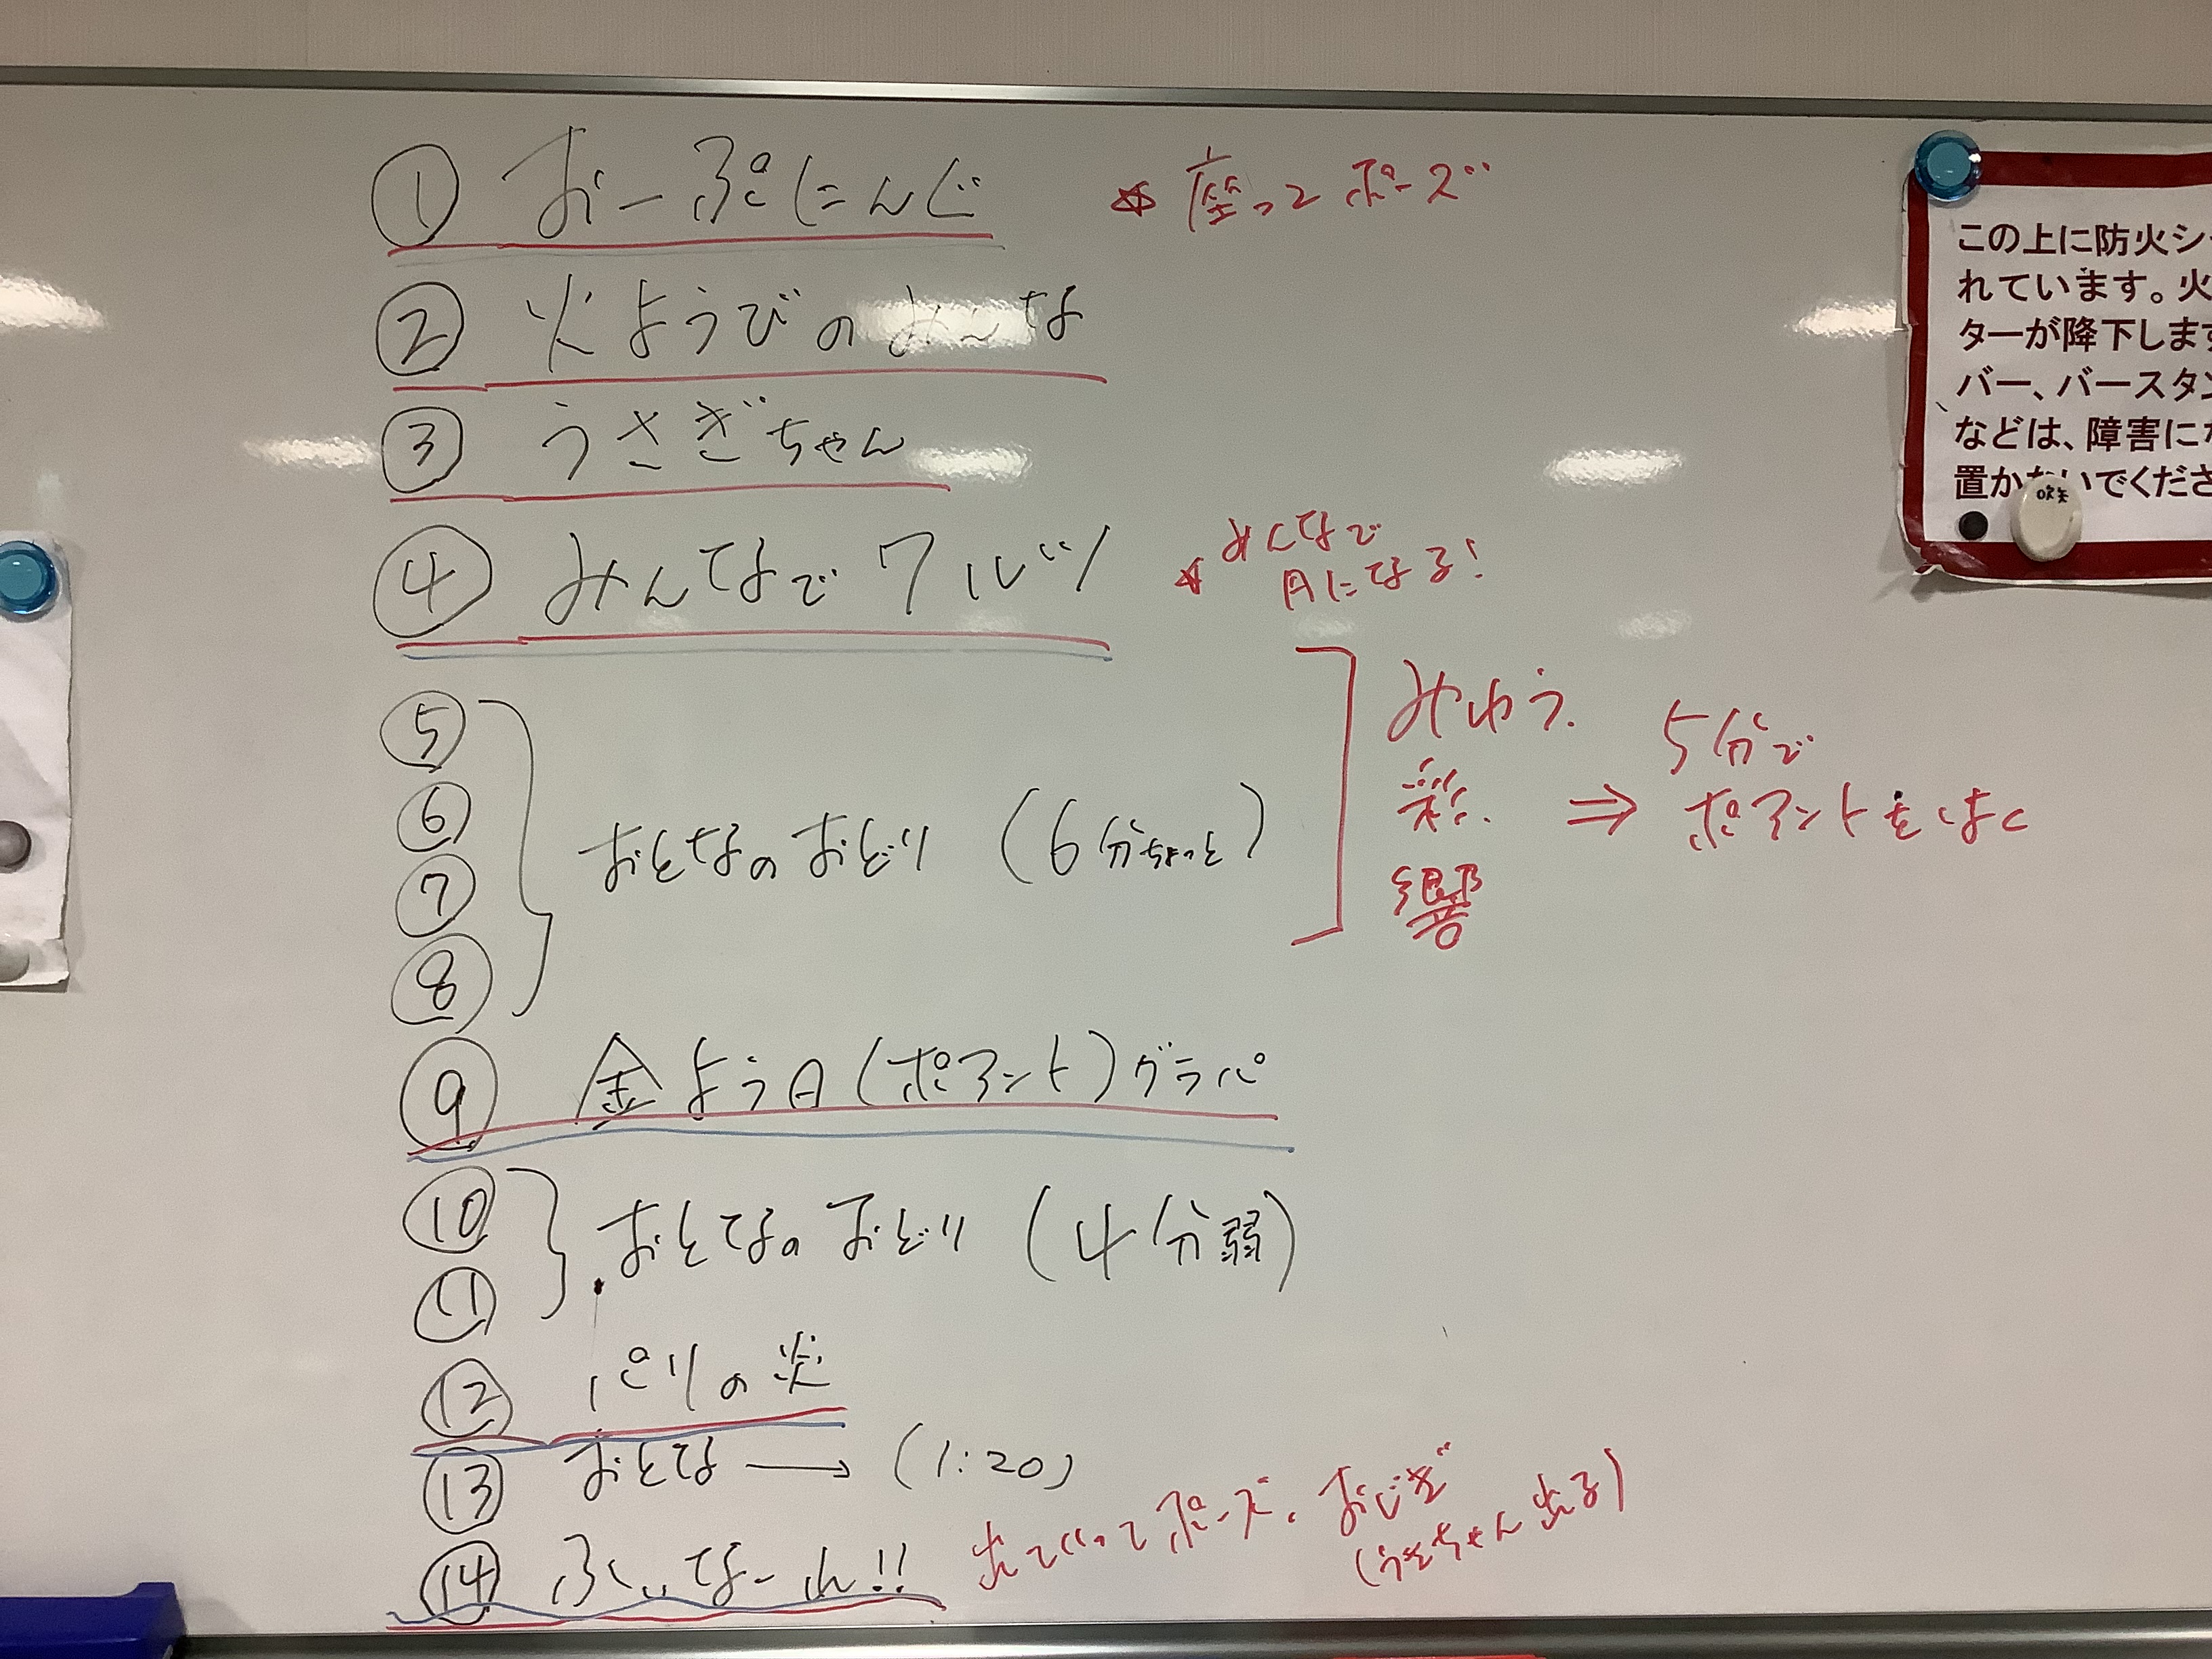 ① おーぷにんぐ ☆座ってポーズ
② 火ようびのみんな
③ うさぎちゃん
④ みんなでワルツ ☆みんなで
円になる!
⑤
⑥
⑦
⑧
おとなのおどり (6分ちょっと)
みゆう.
彩.
響
⇒ 5分で
ポアントをはく
⑨ 金よう日(ポアント)グラパ
⑩
⑪
おとなのおどり (4分弱)
⑫ パリの炎
⑬ おとな → (1:20)
⑭ ふぃなーれ!! 出ていってポーズ. おじぎ
(うさちゃん出る)
この上に防火シ
れています。火
ターが降下しま
バー、バースタン
などは、障害に
置かないでくださ
吹矢